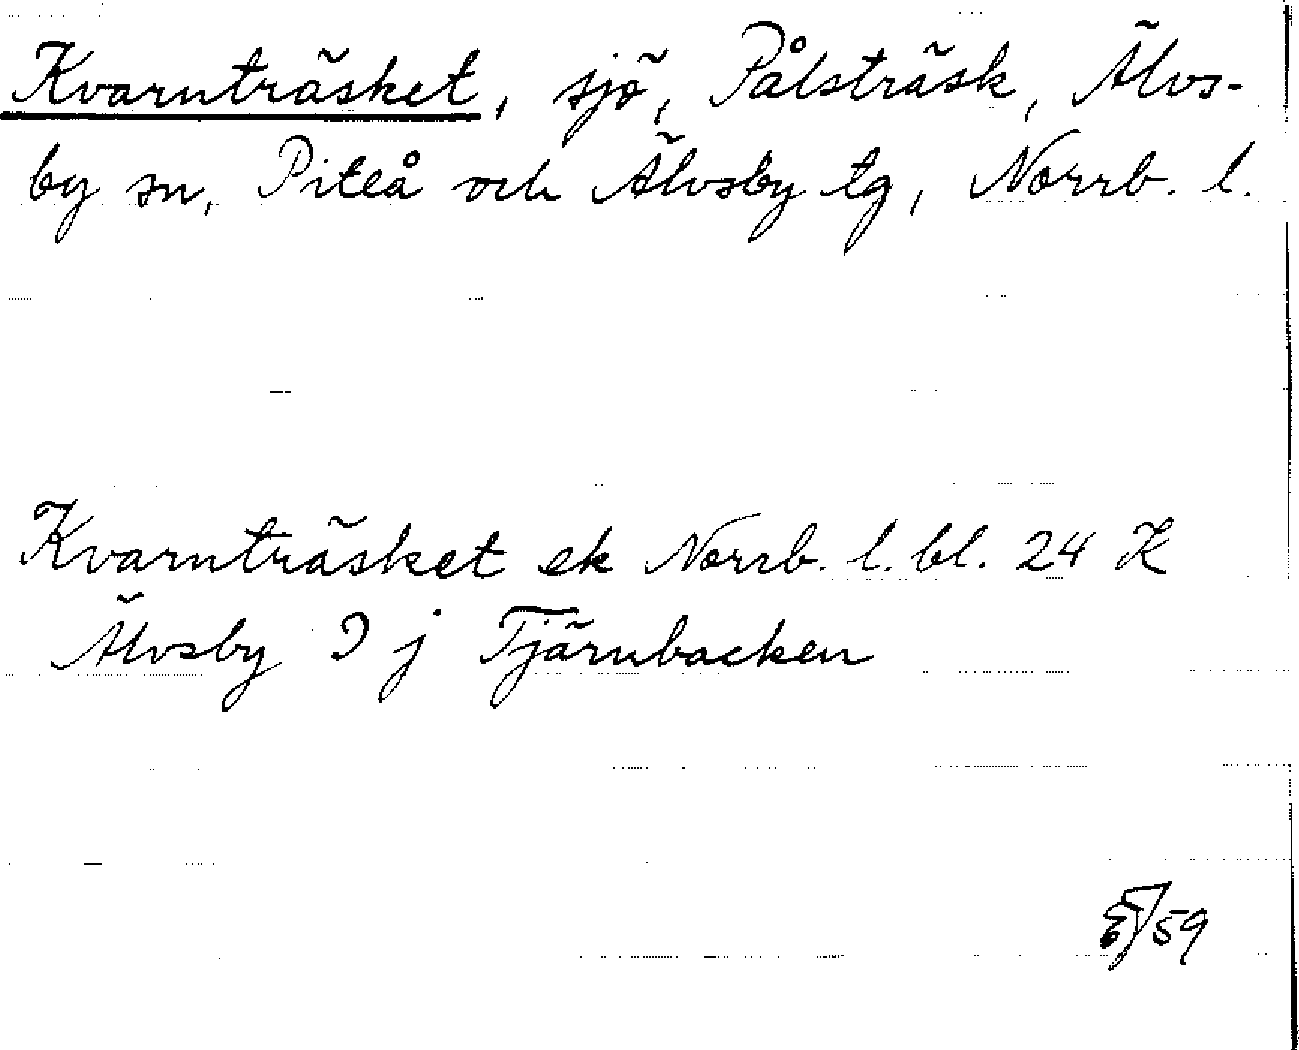 Kvarnträsket, sjö, Pålsträsk, Älvs-
by sn, Piteå och Älvsby tg, Norrb. l.
Kvarnträsket ek Norrb. l. bl. 24 K
Älvsby I j Tjärnbacken
/59